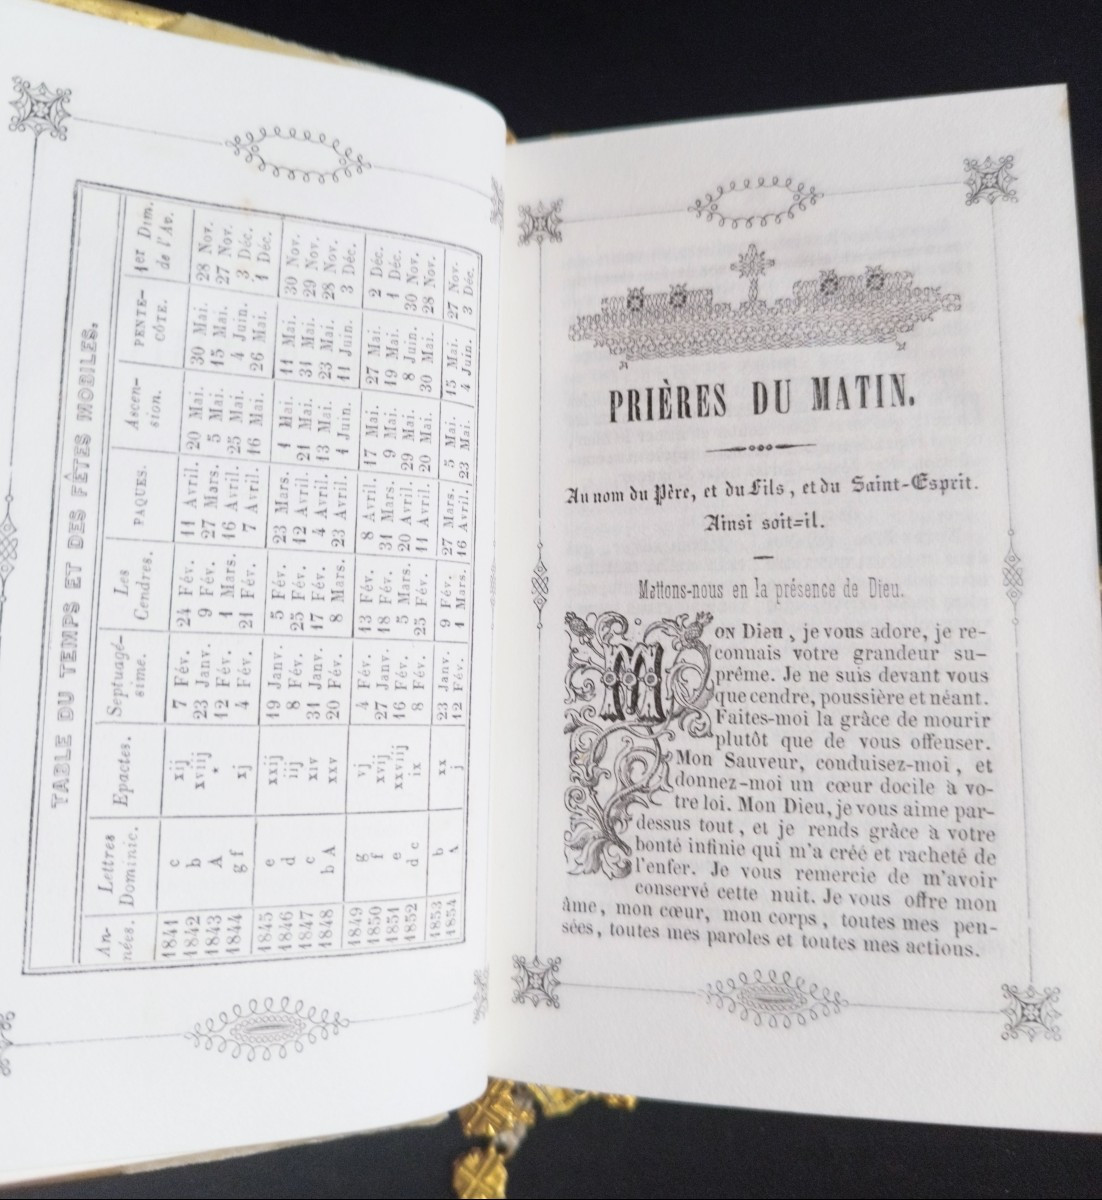 TABLE DU TEMPS ET DES FÊTES MOBILES.
An-nées. Lettres Dominic. Epactes. Septuagé-sime. Les Cendres. PAQUES. Ascen-sion. PENTE-CÔTE. 1er Dim. de l'Av.
1841 c xij 7 Fév. 24 Fév. 11 Avril. 20 Mai. 30 Mai. 28 Nov.
1842 b xviij 23 Janv. 9 Fév. 27 Mars. 5 Mai. 15 Mai. 27 Nov.
1843 A * 12 Fév. 1 Mars. 16 Avril. 25 Mai. 4 Juin. 3 Déc.
1844 g f xj 4 Fév. 21 Fév. 7 Avril. 16 Mai. 26 Mai. 1 Déc.
1845 e xxij 19 Janv. 5 Fév. 23 Mars. 1 Mai. 11 Mai. 30 Nov.
1846 d iij 8 Fév. 25 Fév. 12 Avril. 21 Mai. 31 Mai. 29 Nov.
1847 c xiv 31 Janv. 17 Fév. 4 Avril. 13 Mai. 23 Mai. 28 Nov.
1848 b A xxv 20 Fév. 8 Mars. 23 Avril. 1 Juin. 11 Juin. 3 Déc.
1849 g vj 4 Fév. 13 Fév. 8 Avril. 17 Mai. 27 Mai. 2 Déc.
1850 f xvij 27 Janv. 18 Fév. 31 Mars. 9 Mai. 19 Mai. 1 Déc.
1851 e xxviij 16 Fév. 5 Mars. 20 Avril. 29 Mai. 8 Juin. 30 Nov.
1852 d c ix 8 Fév. 25 Fév. 11 Avril. 20 Mai. 30 Mai. 28 Nov.
1853 b xx 23 Janv. 9 Fév. 27 Mars. 5 Mai. 15 Mai. 27 Nov.
1854 A j 12 Fév. 1 Mars. 16 Avril. 23 Mai. 4 Juin. 3 Déc.
PRIÈRES DU MATIN.
Au nom du Père, et du Fils, et du Saint-Esprit.
Ainsi soit=il.
Mettons-nous en la présence de Dieu.
MON Dieu, je vous adore, je re-
connais votre grandeur su-
prême. Je ne suis devant vous
que cendre, poussière et néant.
Faites-moi la grâce de mourir
plutôt que de vous offenser.
Mon Sauveur, conduisez-moi, et
donnez-moi un cœur docile à vo-
tre loi. Mon Dieu, je vous aime par-
dessus tout, et je rends grâce à votre
bonté infinie qui m'a créé et racheté de
l'enfer. Je vous remercie de m'avoir
conservé cette nuit. Je vous offre mon
âme, mon cœur, mon corps, toutes mes pen-
sées, toutes mes paroles et toutes mes actions.